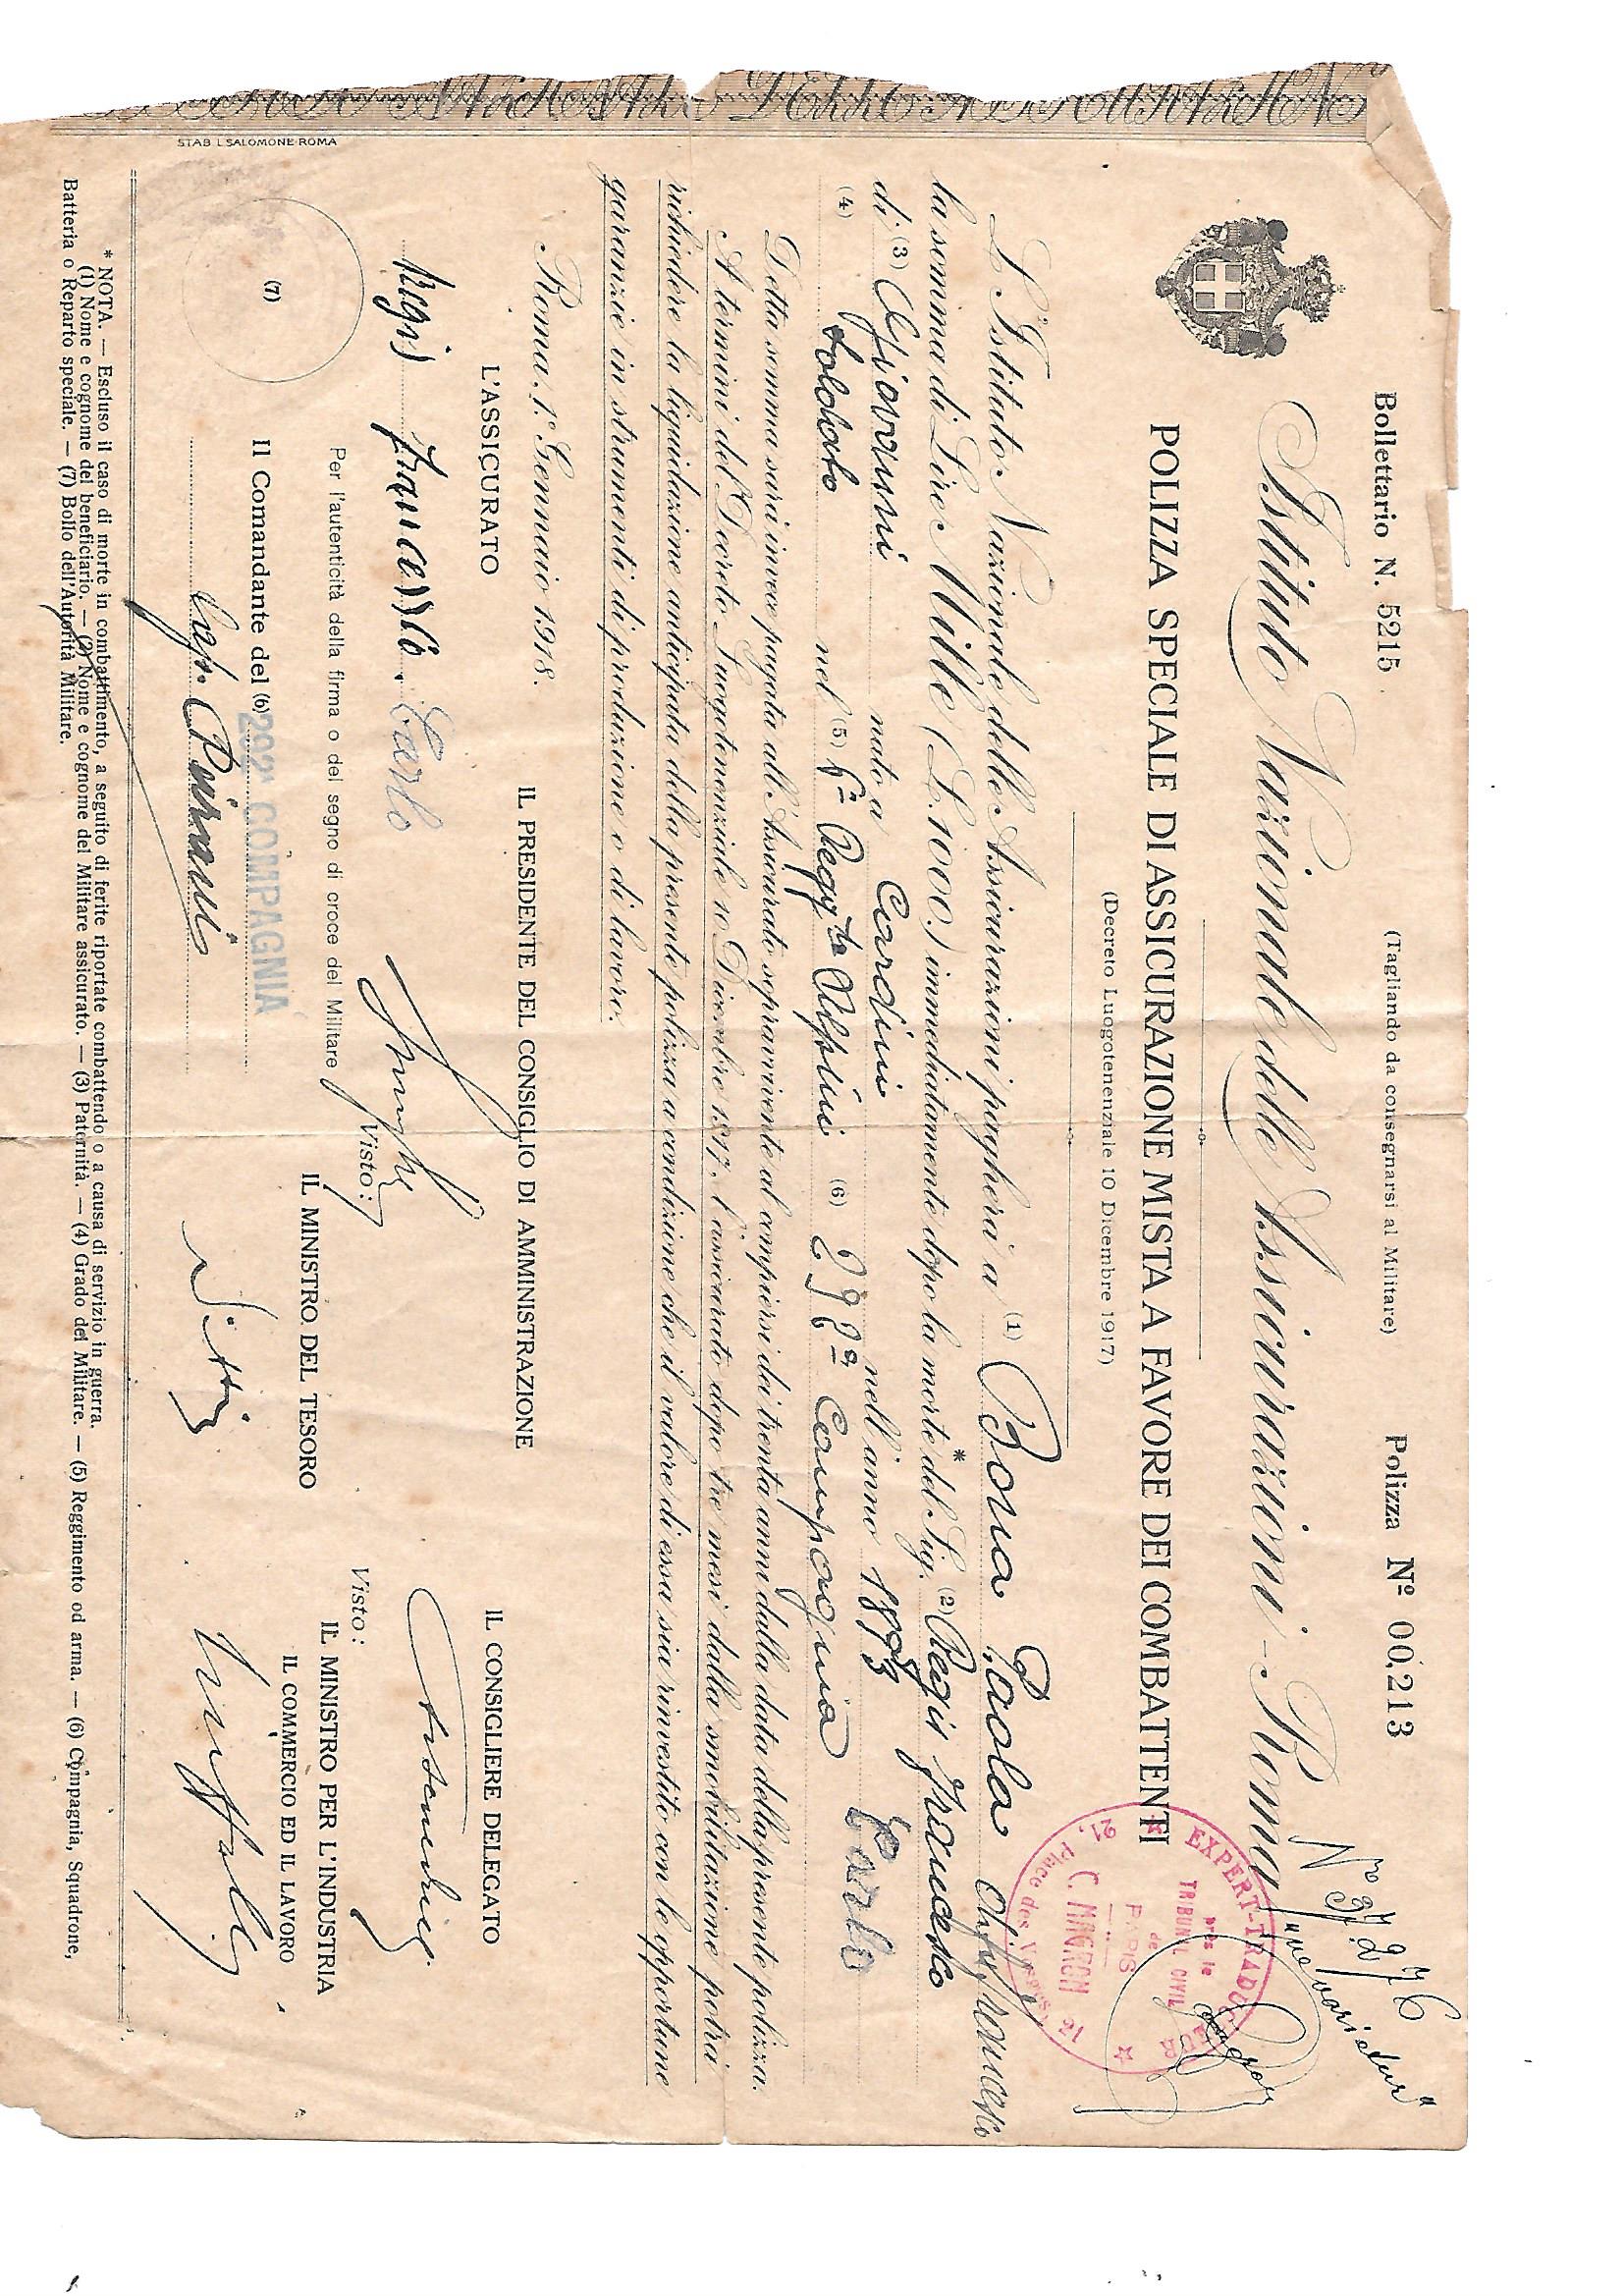 Bollettario N. 5215
(Tagliando da consegnarsi al Militare)
Polizza Nº 00,213
Nº 37276
"ne varietur"
Istituto Nazionale delle Assicurazioni - Roma
POLIZZA SPECIALE DI ASSICURAZIONE MISTA A FAVORE DEI COMBATTENTI
(Decreto Luogotenenziale 10 Dicembre 1917)
EXPERT-TRADUCTEUR
près le
TRIBUNAL CIVIL
de
PARIS
C. MAGRON
21, Place des Vosges, 12
L'Istituto Nazionale delle Assicurazioni pagherà a (1) Bona Paola di Francesco
la somma di Lire Mille (L. 1000.) immediatamente dopo la morte * del Sig. (2) Regis Francesco
Carlo
di (3) Giovanni nato a Cardini nell'anno 1893
(4) soldato nel (5) 6º Regg.to Alpini (6) 292ª Compagnia
Detta somma sarà invece pagata all'Assicurato sopravvivente al compiersi dei trenta anni dalla data della presente polizza.
A termini del Decreto Luogotenenziale 10 Dicembre 1917, l'assicurato dopo tre mesi dalla smobilitazione potrà
richiedere la liquidazione anticipata della presente polizza a condizione che il valore di essa sia rinvestito con le opportune
garanzie in strumenti di produzione o di lavoro.
Roma, 1º Gennaio 1918.
L'ASSICURATO
Regis Francesco. Carlo
Per l'autenticità della firma o del segno di croce del Militare
Il Comandante del (6) 292ª COMPAGNIA
(7)
IL PRESIDENTE DEL CONSIGLIO DI AMMINISTRAZIONE
Visto:
IL MINISTRO DEL TESORO
Nitti
IL CONSIGLIERE DELEGATO
Visto:
IL MINISTRO PER L'INDUSTRIA
IL COMMERCIO ED IL LAVORO
* NOTA. — Escluso il caso di morte in combattimento, a seguito di ferite riportate combattendo o a causa di servizio in guerra.
(1) Nome e cognome del beneficiario. — (2) Nome e cognome del Militare assicurato. — (3) Paternità. — (4) Grado del Militare. — (5) Reggimento od arma. — (6) Compagnia, Squadrone,
Batteria o Reparto speciale. — (7) Bollo dell'Autorità Militare.
STAB. L. SALOMONE-ROMA